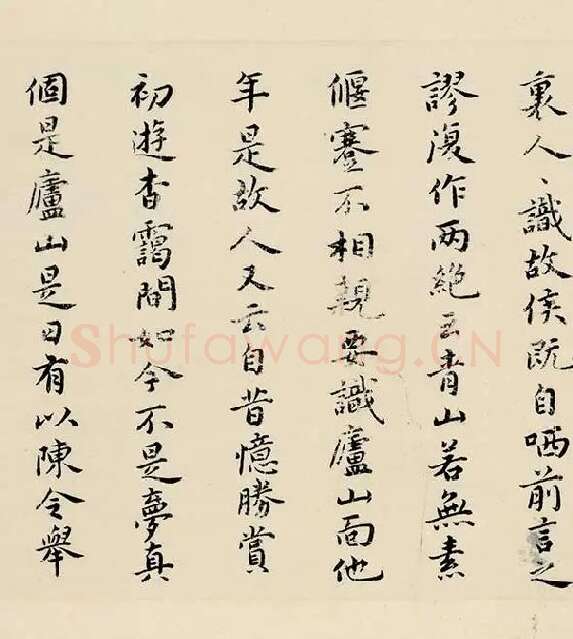 裏人〻識故侯既自哂前言之
謬復作两絕云青山若無素
偃蹇不相親要識廬山面他
年是故人又云自昔憶勝賞
初遊杳靄間如今不是夢真
個是廬山是日有以陳令舉
Shufawang.CN